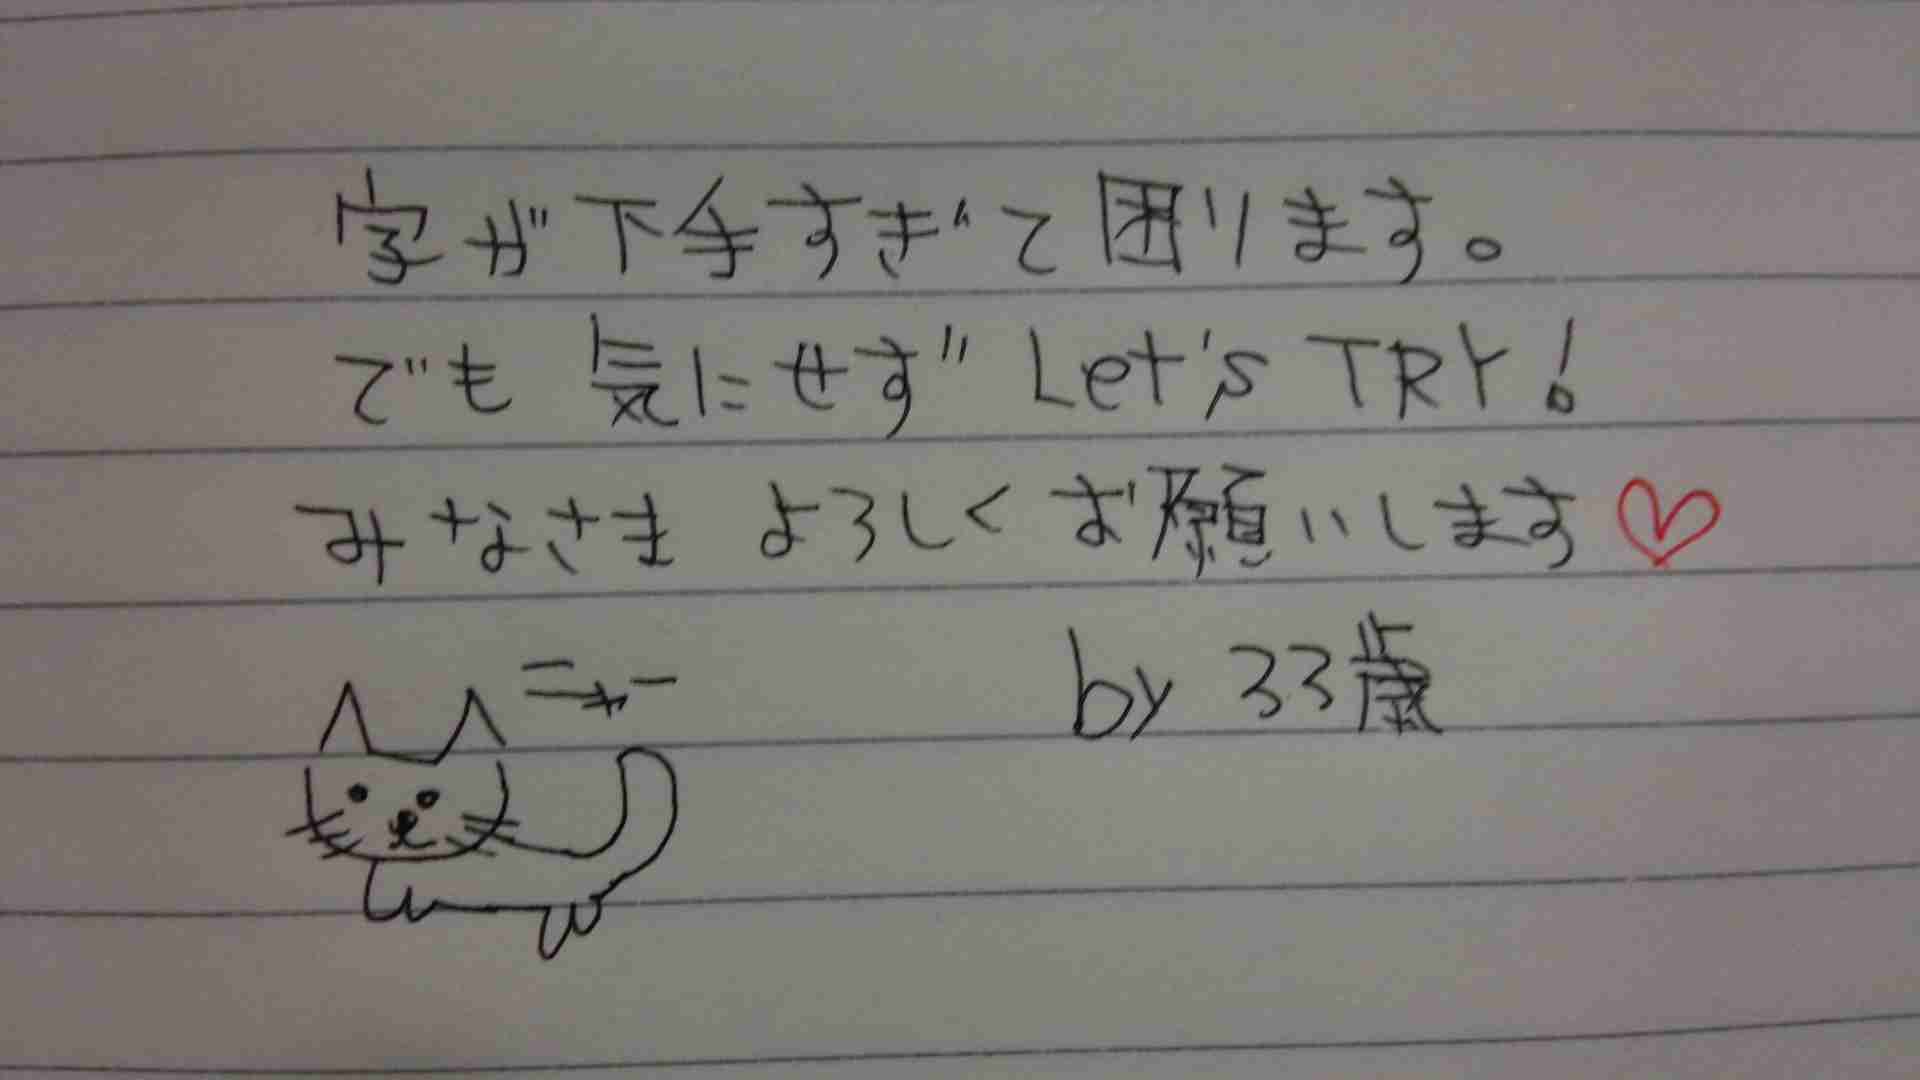 字が下手すぎて困ります。
でも 気にせず Let's TRY!
みなさま よろしく お願いします♡
ニャー
by 33歳